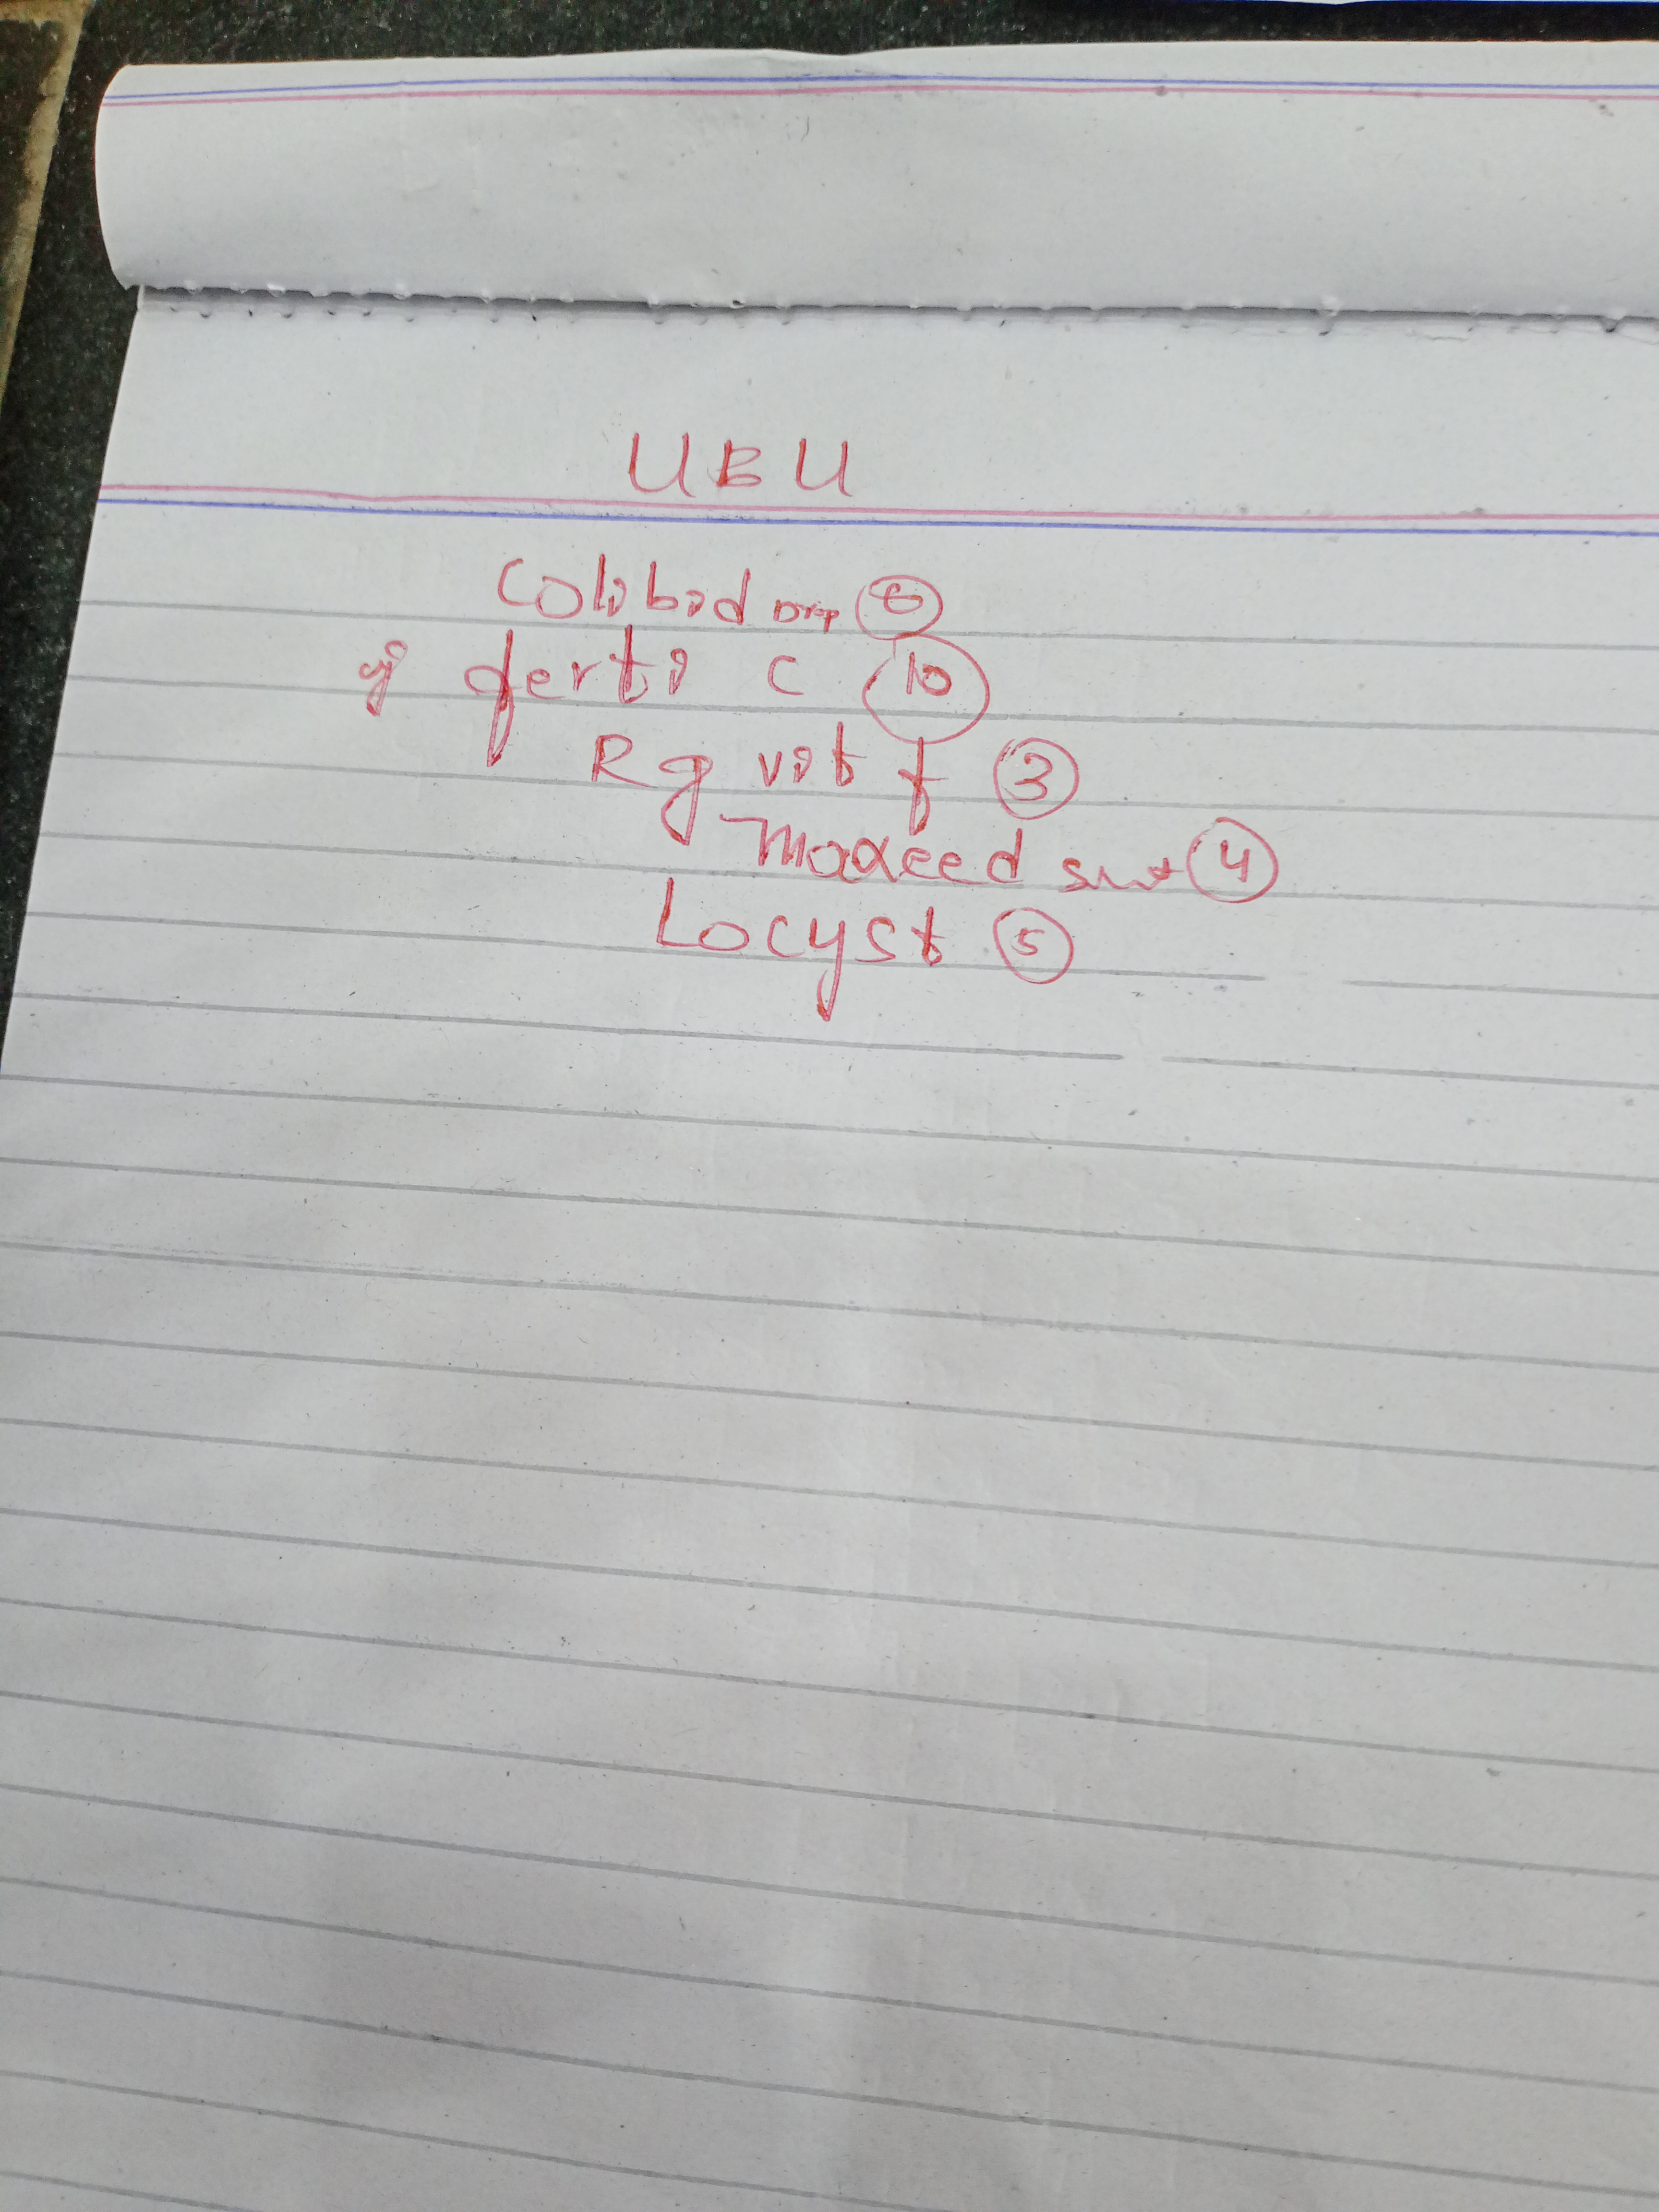 UBU
Colibid Drop 6
ej ferti C 10
Rg vit f 3
Moxeed 4
Locyst 5